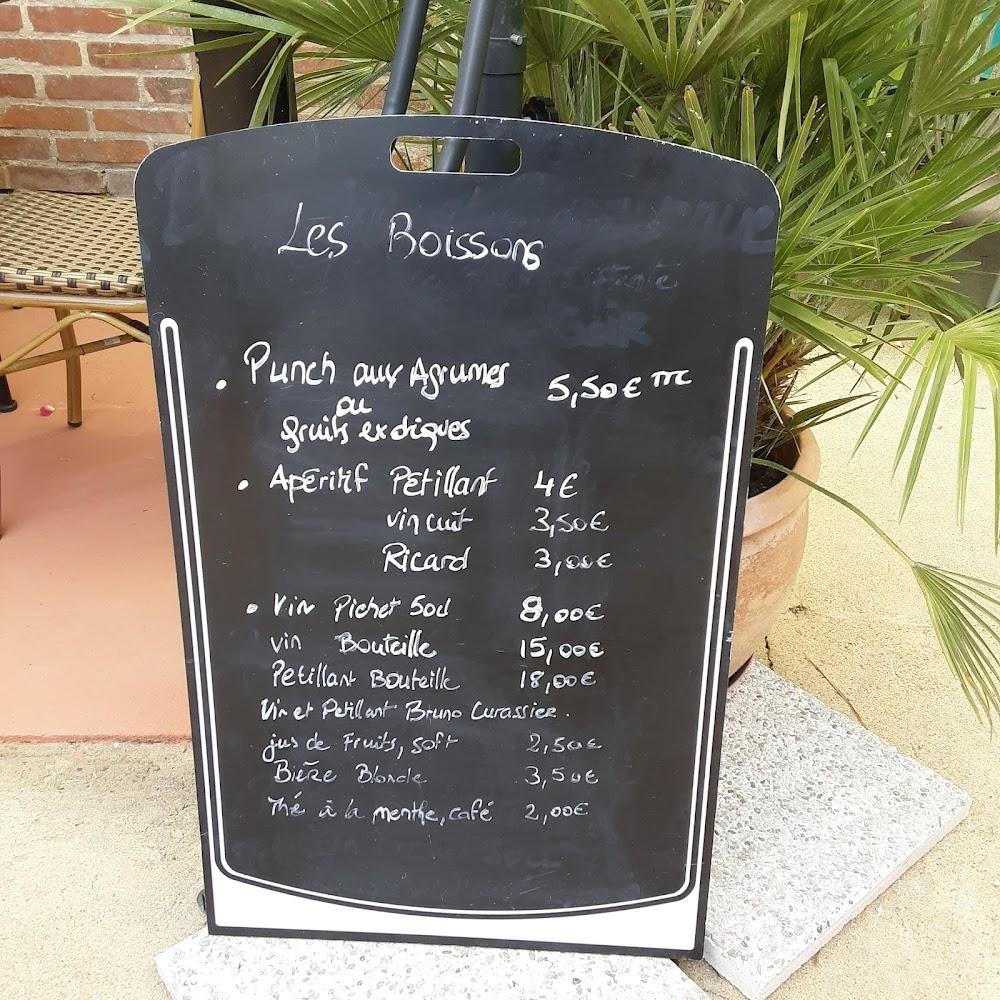 Les Boissons
• Punch aux Agrumes 5,50€ TTC
ou
fruits exotiques
• Apéritif Pétillant 4€
vin cuit 3,50€
Ricard 3,00€
• Vin Pichet 50cl 8,00€
vin Bouteille 15,00€
Petillant Bouteille 18,00€
Vin et Petillant Bruno Curassier.
jus de Fruits, soft 2,50€
Bière Blonde 3,50€
Thé à la menthe, café 2,00€